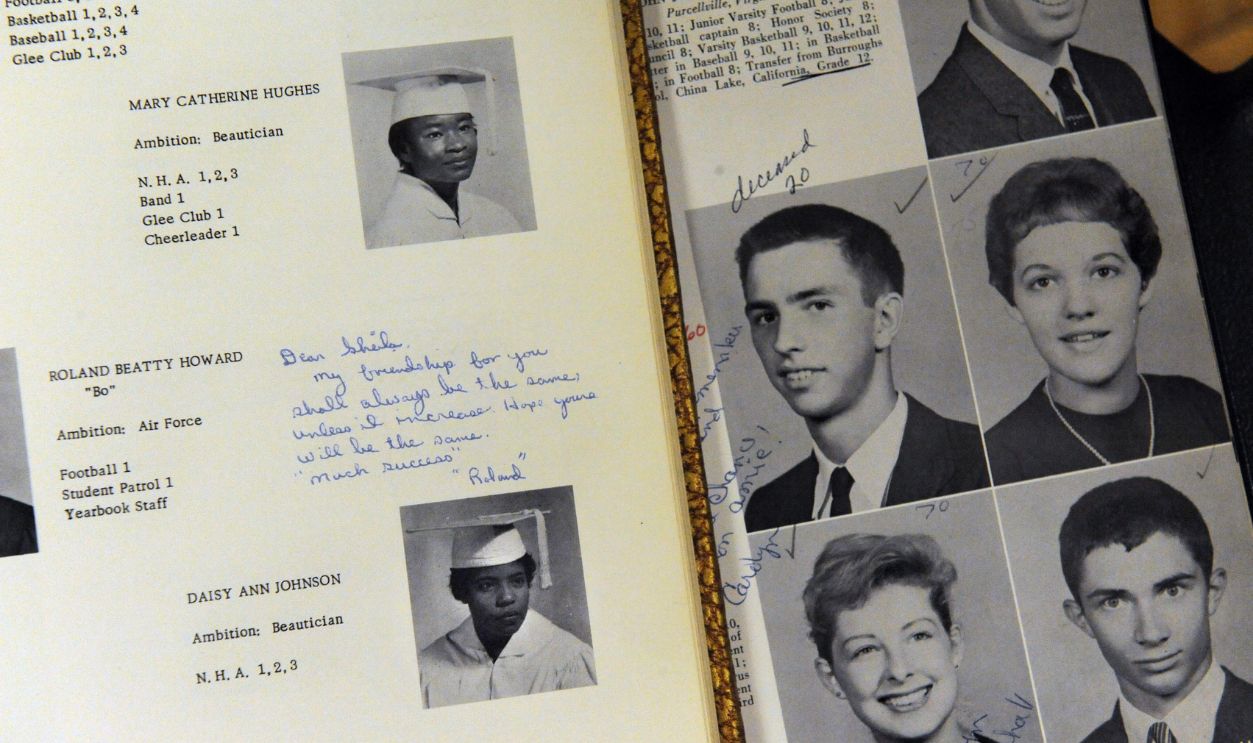 Basketball 1,2,3,4
Baseball 1,2,3,4
Glee Club 1,2,3
MARY CATHERINE HUGHES
Ambition: Beautician
N. H. A. 1,2,3
Band 1
Glee Club 1
Cheerleader 1
ROLAND BEATTY HOWARD
"Bo"
Ambition: Air Force
Football 1
Student Patrol 1
Yearbook Staff
Dear Sheila,
My friendship for you
shall always be the same,
unless it increase. Hope yours
will be the same.
"Much success"
"Roland"
DAISY ANN JOHNSON
Ambition: Beautician
N. H. A. 1,2,3
Purcellville,
10, 11; Junior Varsity Football 8;
captain 8; Honor Society 8;
8; Varsity Basketball 9, 10, 11, 12;
in Baseball 9, 10, 11; in Basketball
; in Football 8; Transfer from Burroughs
China Lake, California, Grade 12.
deceased
20
70
60
70
and
on
Carolyn
0,
of
1;